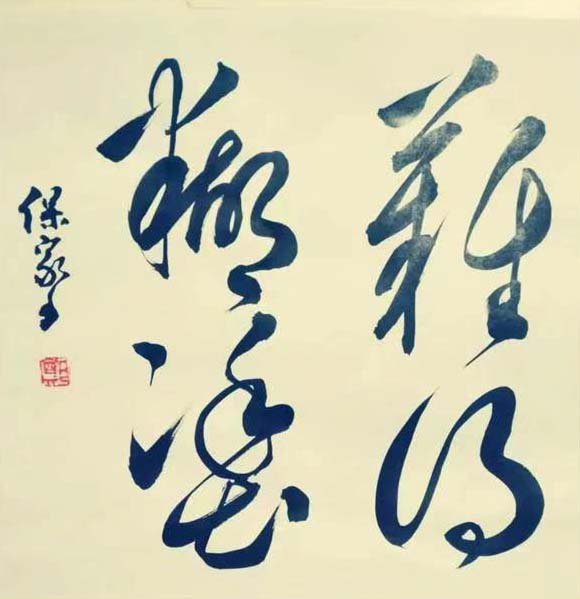 難得
糊塗
保家